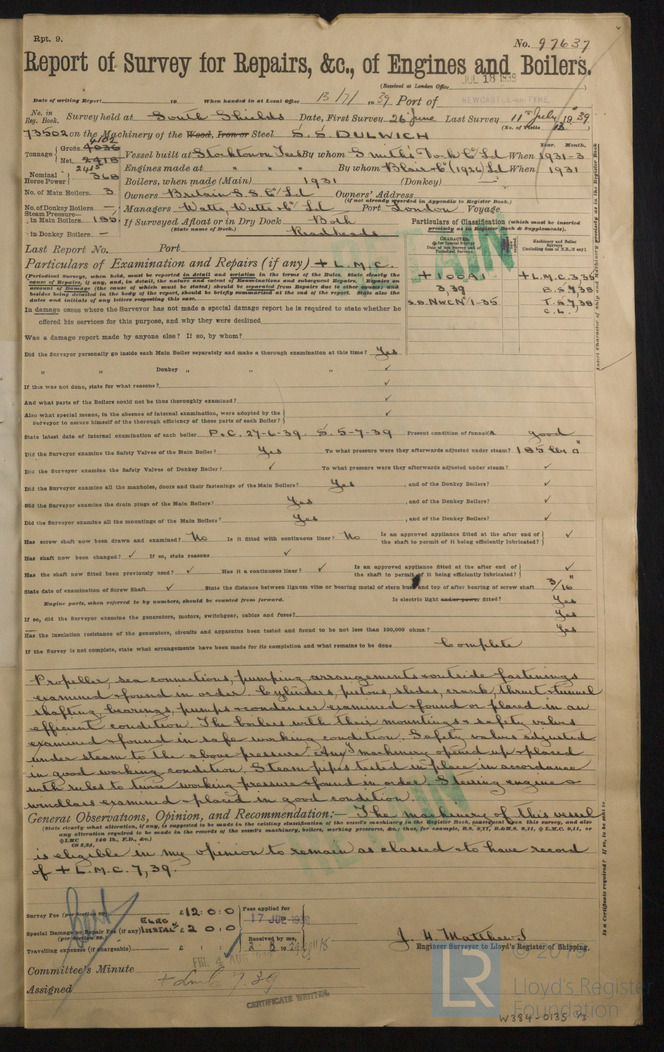 Rpt. 9.
No. 97637
Report of Survey for Repairs, &c., of Engines and Boilers.
(Received at London Office JUL 18 1939
Date of writing Report 19 When handed in at Local Office 13/7/ 19 39 Port of NEWCASTLE-ON-TYNE
No. in Reg. Book. Survey held at South Shields Date, First Survey 26 June Last Survey 11th July 19 39
(No. of Visits 18)
73502 on the Machinery of the Wood, Iron or Steel S.S. DULWICH
Tonnage Gross
Net 2418
Vessel built at Stockton Tees By whom Smith's Dock Co Ld When 1931-3
Year. Month.
Nominal Horse Power 368
Engines made at By whom Blair & Co (1926) Ld When 1931
No. of Main Boilers. 3
Boilers, when made (Main) 1931 (Donkey)
Owners Britain S.S. Co Ld Owners' Address
(if not already recorded in Appendix to Register Book.)
No. of Donkey Boilers —
Managers Watts, Watts & Co Ld Port London Voyage
Steam Pressure—
in Main Boilers.
If Surveyed Afloat or in Dry Dock Both
(State name of Dock.) Readheads
in Donkey Boilers. —
Particulars of Classification (which must be inserted precisely as in Register Book & Supplements).
Last Report No. Port
Particulars of Examination and Repairs (if any) + L.M.C.
+ 100A1 + L.M.C. 3,35
3,39 B.S. 7,38
S.S. NWC No 1-35 T.S. 7,38
C.L.
In damage cases where the Surveyor has not made a special damage report he is required to state whether he
offered his services for this purpose, and why they were declined
Was a damage report made by anyone else? If so, by whom?
Did the Surveyor personally go inside each Main Boiler separately and make a thorough examination at this time? Yes
" " Donkey " " " " ✓
If this was not done, state for what reasons? ✓
And what parts of the Boilers could not be thoroughly examined? ✓
Also what special means, in the absence of internal examination, were adopted by the
Surveyor to assure himself of the thorough efficiency of those parts of each Boiler? ✓
State latest date of internal examination of each boiler P.C. 27-6-39. S. 5-7-39 Present condition of funnels good
Did the Surveyor examine the Safety Valves of the Main Boiler? Yes To what pressure were they afterwards adjusted under steam? 185 lbs □"
Did the Surveyor examine the Safety Valves of Donkey Boiler? ✓ To what pressure were they afterwards adjusted under steam? ✓
Did the Surveyor examine all the manholes, doors and their fastenings of the Main Boilers? Yes , and of the Donkey Boilers? ✓
Did the Surveyor examine the drain plugs of the Main Boilers? Yes , and of the Donkey Boilers? ✓
Did the Surveyor examine all the mountings of the Main Boilers? Yes , and of the Donkey Boilers? ✓
Has screw shaft now been drawn and examined? No Is it fitted with continuous liner? No Is an approved appliance fitted at the after end of
the shaft to permit of it being efficiently lubricated? ✓
Has shaft now been changed? ✓ If so, state reasons ✓
Has the shaft now fitted been previously used? ✓ Has it a continuous liner? ✓ Is an approved appliance fitted at the after end of
the shaft to permit of it being efficiently lubricated? ✓
State date of examination of Screw Shaft ✓ State the distance between lignum vitæ or bearing metal of stern bush and top of after bearing of screw shaft 3/16"
Engine parts, when referred to by numbers, should be counted from forward. Is electric light and/or power fitted? Yes
If so, did the Surveyor examine the generators, motors, switchgear, cables and fuses? Yes
Has the insulation resistance of the generators, circuits and apparatus been tested and found to be not less than 100,000 ohms? Yes
If the Survey is not complete, state what arrangements have been made for its completion and what remains to be done Complete
Propeller, sea connections, pumping arrangements & outside fastenings
examined & found in order. Cylinders, pistons, slides, crank, thrust & tunnel
shafting, bearings, pumps & condenser examined & found or placed in an
efficient condition. The boilers with their mountings & safety valves
examined & found in safe working condition. Safety valves adjusted
under steam to the above pressure. Any machinery opened up & placed
in good working condition. Steam pipes tested in place in accordance
with rules to twice working pressure & found in order. Steering engine &
windlass examined & placed in good condition.
General Observations, Opinion, and Recommendation:— The machinery of this vessel
is eligible in my opinion to remain as classed & to have record
of + L.M.C. 7,39.
Survey Fee (per Section 29) £ 12 : 0 : 0
Fees applied for
17 JUL 1939
Special Damage or Repair Fee (if any) £ 2 : 0 : 0
(per Section 29.)
Received by me,
Travelling expenses (if chargeable) £ : :
J. H. Matthews
Engineer Surveyor to Lloyd's Register of Shipping.
Committee's Minute FRI. 4 AUG
Assigned + LMC 7.39
CERTIFICATE WRITTEN
© 2019
Lloyd's Register
Foundation
LR
W384-0135 1/2